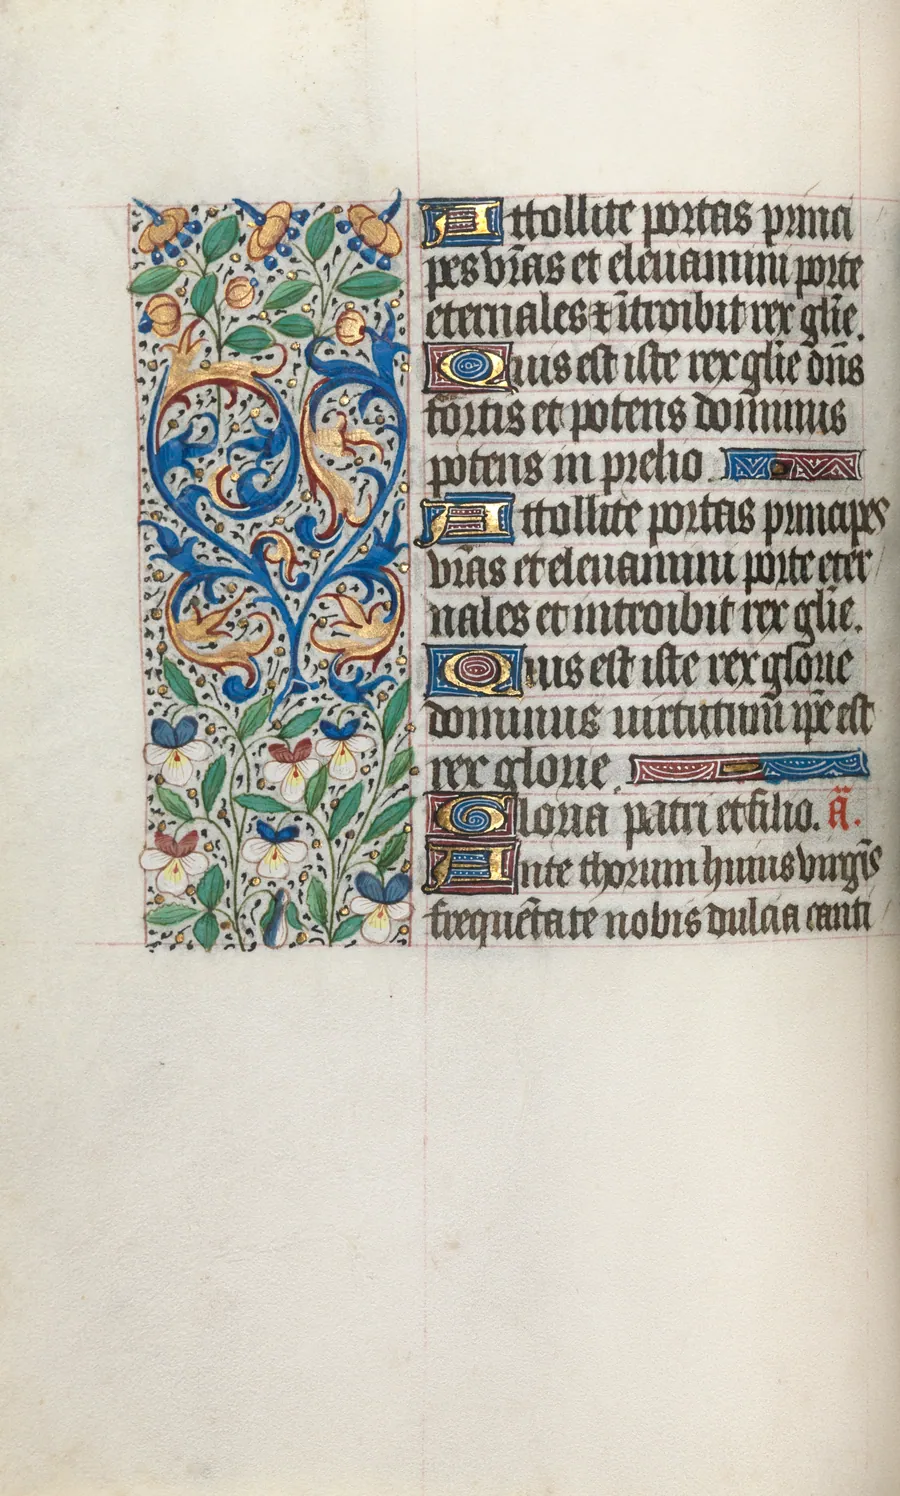 Attollite portas princi
pes vr̃as et eleuamini porte
eternales & ĩtroibit rex glĩe.
Quis est iste rex glĩe dñs
fortis et potens dominus
potens in prelio
Attollite portas principes
vr̃as et eleuamini porte eter
nales et introibit rex glĩe.
Quis est iste rex glorie
dominus uirtutum ip̃e est
rex glorie.
Gloria patri et filio. ã.
Ante thorum huius virgĩs
frequẽtate nobis dulcia canti